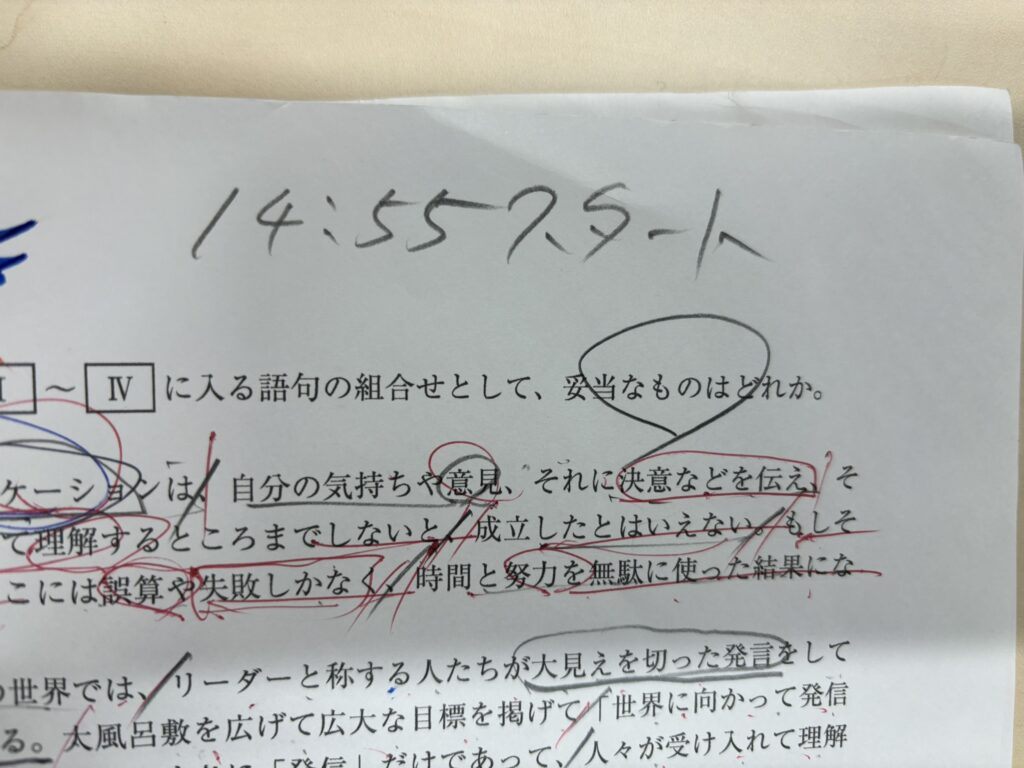 14:55スタート
Ⅰ ～ Ⅳ に入る語句の組合せとして、妥当なものはどれか。
ケーションは、自分の気持ちや意見、それに決意などを伝え、そ
て理解するところまでしないと、成立したとはいえない。もしそ
こには誤算や失敗しかなく、時間と努力を無駄に使った結果にな
の世界では、リーダーと称する人たちが大見えを切った発言をして
る。大風呂敷を広げて広大な目標を掲げて「世界に向かって発信
「発信」だけであって、人々が受け入れて理解